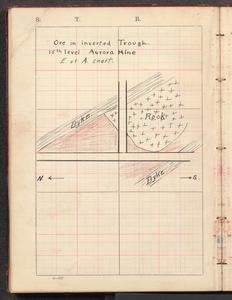 S. T. R.
Ore in inverted Trough.
15th level Aurora Mine
E of A shaft.
Dyke
Rock
N. S.
Dyke